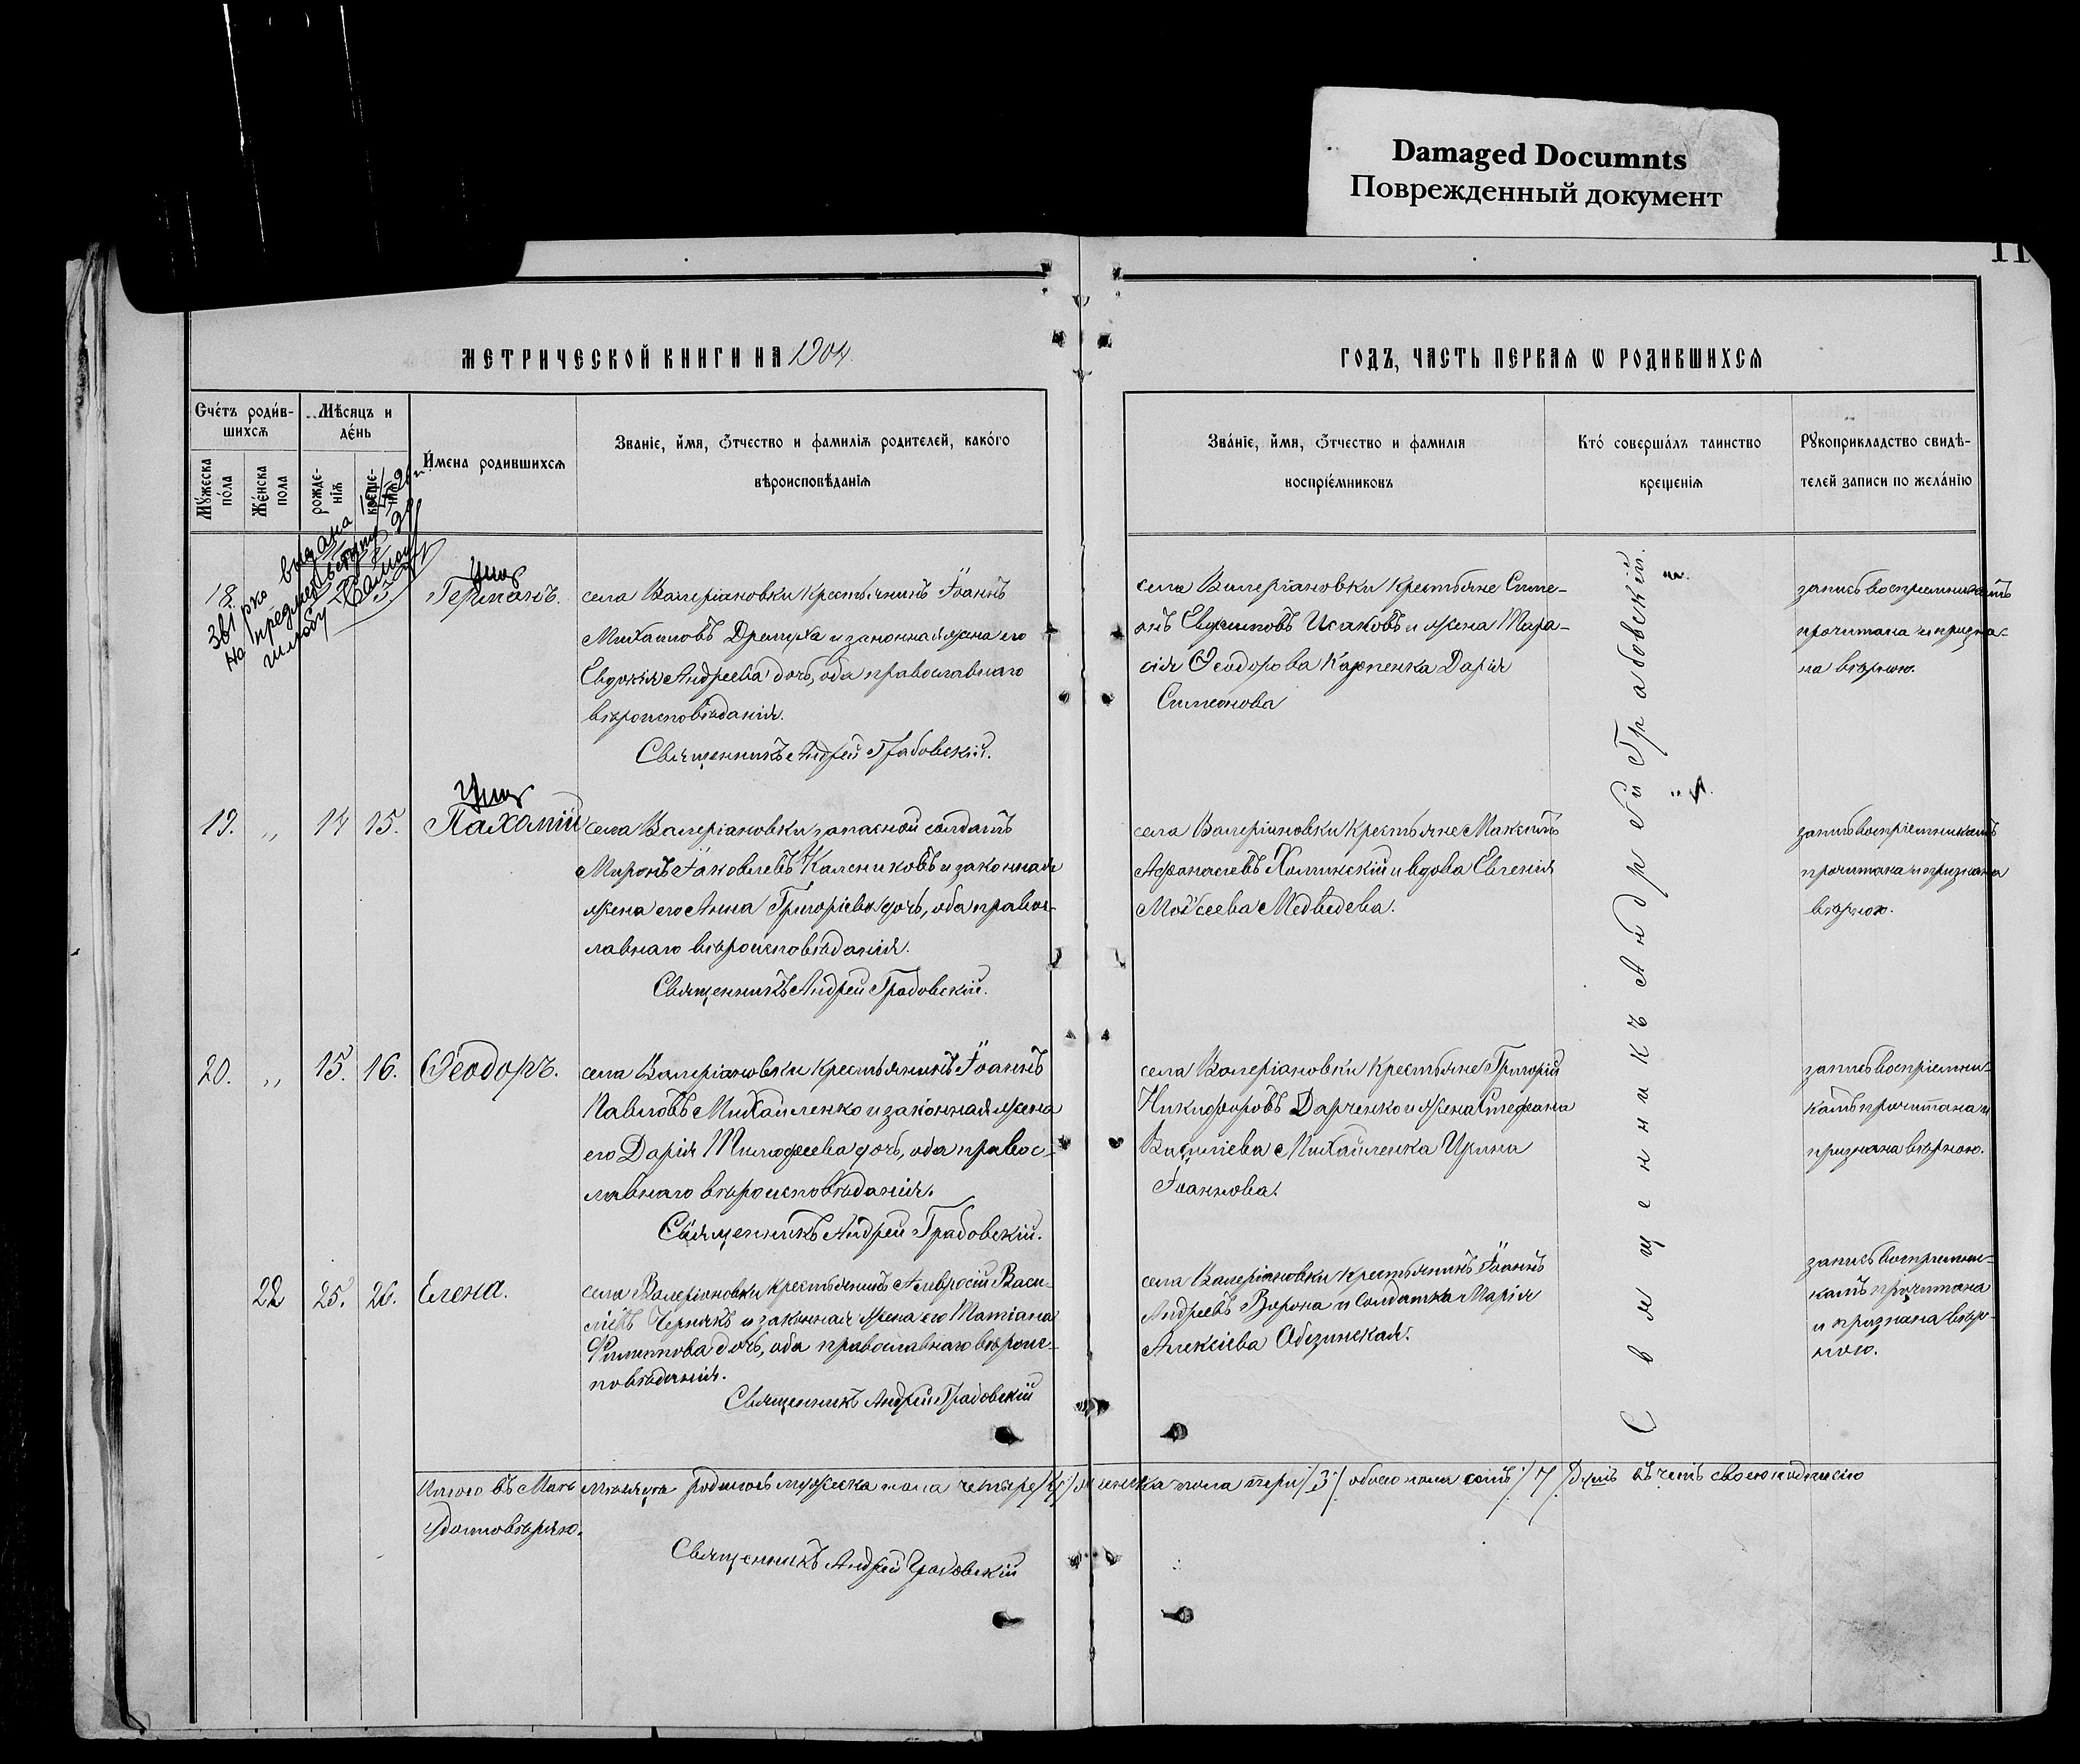 Damaged Documnts
Поврежденный документ
11
МЕТРИЧЕСКОЙ КНИГИ НА 1904.
ГОДЪ, ЧАСТЬ ПЕРВАЯ Ѡ РОДИВШИХСЯ
Счетъ родив-
шихся
Мѣсяцъ и
день
Имена родившихся
Званіе, имя, отчество и фамилія родителей, какого
вѣроисповѣданія
Званіе, имя, отчество и фамилія
воспріемниковъ
Кто совершалъ таинство
крещенія
Рукоприкладство свидѣ-
телей записи по желанію
Мужеска
пола
Женска
пола
рожде-
нія
креще-
нія
выдана
на предмет
шлюбу
18.
Умер
Германъ.
села Валеріановки крестьянинъ Іоаннъ
Михаиловъ Дремуха и законная жена его
Евдокія Андреева дочь, оба православнаго
вѣроисповѣданія.
Священникъ Андрей Грабовскій.
села Валеріановки крестьяне Симе-
онъ Евфимовъ Исаковъ и жена Тара-
сія Ѳеодорова Карпенка Дарія
Симеонова
запись воспріемникамъ
прочитана и призна-
на вѣрною.
Умер
19. " 14 15. Пахомій
села Валеріановки запасной солдатъ
Миронъ Іаковлевъ Калениковъ и законная
жена его Анна Григоріева дочь, оба правос-
лавнаго вѣроисповѣданія.
Священникъ Андрей Грабовскій.
села Валеріановки крестьяне Максимъ
Афанасіевъ Холминскій и вдова Евгенія
Моѵсеева Медведева.
запись воспріемникамъ
прочитана и признана
вѣрною.
20. " 15. 16. Ѳеодоръ.
села Валеріановки крестьянинъ Іоаннъ
Павловъ Михайленко и законная жена
его Дарія Тимофеева дочь, оба правос-
лавнаго вѣроисповѣданія.
Священникъ Андрей Грабовскій.
села Валеріановки крестьяне Григорій
Никифоровъ Дарченко и жена Стефана
Василіева Михайленка Ирина
Іоаннова.
запись воспріемни-
камъ прочитана и
признана вѣрною.
22 25. 26. Елена.
села Валеріановки крестьянинъ Амвросій Васи-
ліевъ Чернякъ и законная жена его Татіана
Филиппова дочь, оба православнаго вѣроис-
повѣданія.
Священникъ Андрей Грабовскій
села Валеріановки крестьянинъ Іоаннъ
Андреевъ Ворона и солдатка Марія
Алексіева Обезинская.
запись воспріемни-
камъ прочитана
и признана вѣр-
ною.
Священникъ Андрей Грабовскій.
Итого въ Маѣ мѣсяцѣ родилось мужеска пола четыре /4/ женска пола три /3/ обоего пола семь /7/ душъ въ чемъ своею подписью
удостовѣряю.
Священникъ Андрей Грабовскій